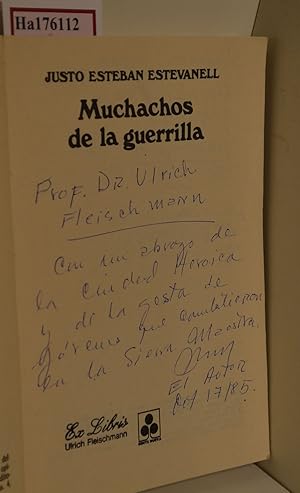 Ha176112
JUSTO ESTEBAN ESTEVANELL
Muchachos
de la guerrilla
Prof. DR. Ulrich
Fleischmann
Con un abrazo de
la Ciudad Heroica
y de la gesta de
jóvenes que combatieron
en la Sierra Maestra.
El Autor
17/85.
Ex Libris
Ulrich Fleischmann